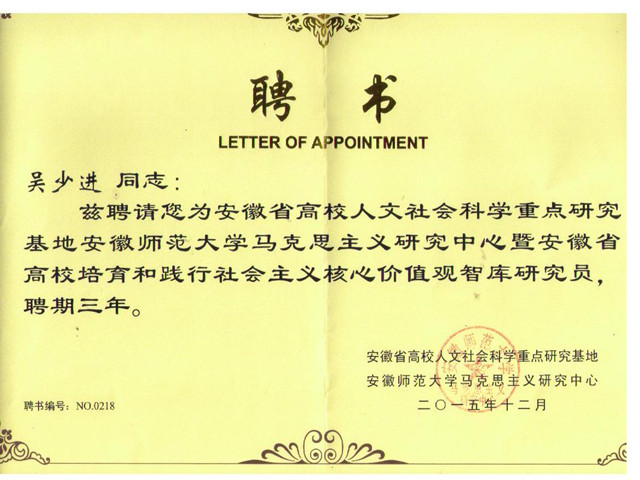 聘书
LETTER OF APPOINTMENT
吴少进 同志：
兹聘请您为安徽省高校人文社会科学重点研究
基地安徽师范大学马克思主义研究中心暨安徽省
高校培育和践行社会主义核心价值观智库研究员，
聘期三年。
安徽省高校人文社会科学重点研究基地
安徽师范大学马克思主义研究中心
二〇一五年十二月
聘书编号：NO.0218